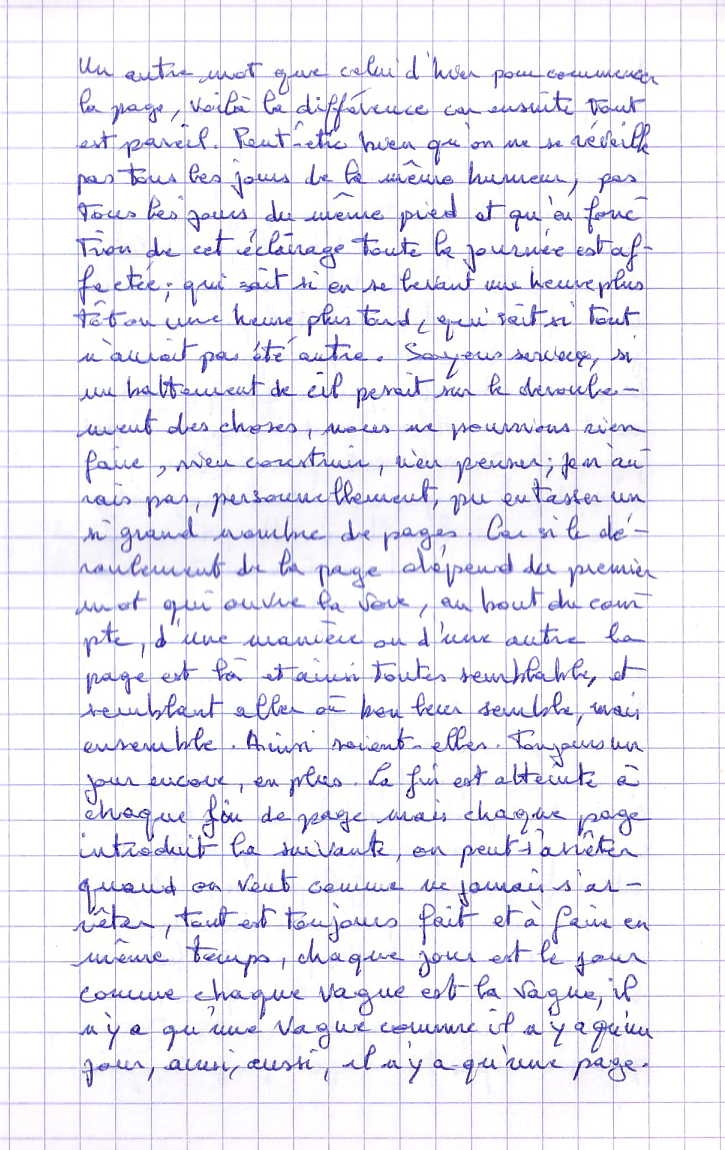 Un autre mot que celui d'hier pour commencer
la page, voilà la différence car ensuite tout
est pareil. Peut-être bien qu'on ne se réveille
pas tous les jours de la même humeur, pas
tous les jours du même pied et qu'en fonc
tion de cet éclairage toute la journée est af-
fectée ; qui sait si en se levant une heure plus
tôt ou une heure plus tard, qui sait si tout
n'aurait pas été autre. Soyons sérieux, si
un battement de cil pesait sur le déroule-
ment des choses, nous ne pourrions rien
faire, rien construire, rien penser ; je n'au
rais pas, personnellement, pu entasser un
si grand nombre de pages. Car si le dé-
roulement de la page dépend du premier
mot qui ouvre la voie, au bout du com
pte, d'une manière ou d'une autre la
page est là et ainsi toutes semblable, et
semblant aller où bon leur semble, mais
ensemble. Ainsi soient-elles. Toujours un
jour encore, en plus. La fin est atteinte à
chaque fin de page mais chaque page
introduit la suivante, on peut s'arrêter
quand on veut comme ne jamais s'ar-
rêter, tout est toujours fait et à faire en
même temps, chaque jour est le jour
comme chaque vague est la vague, il
n'y a qu'une vague comme il n'y a qu'un
jour, ainsi, aussi, il n'y a qu'une page.